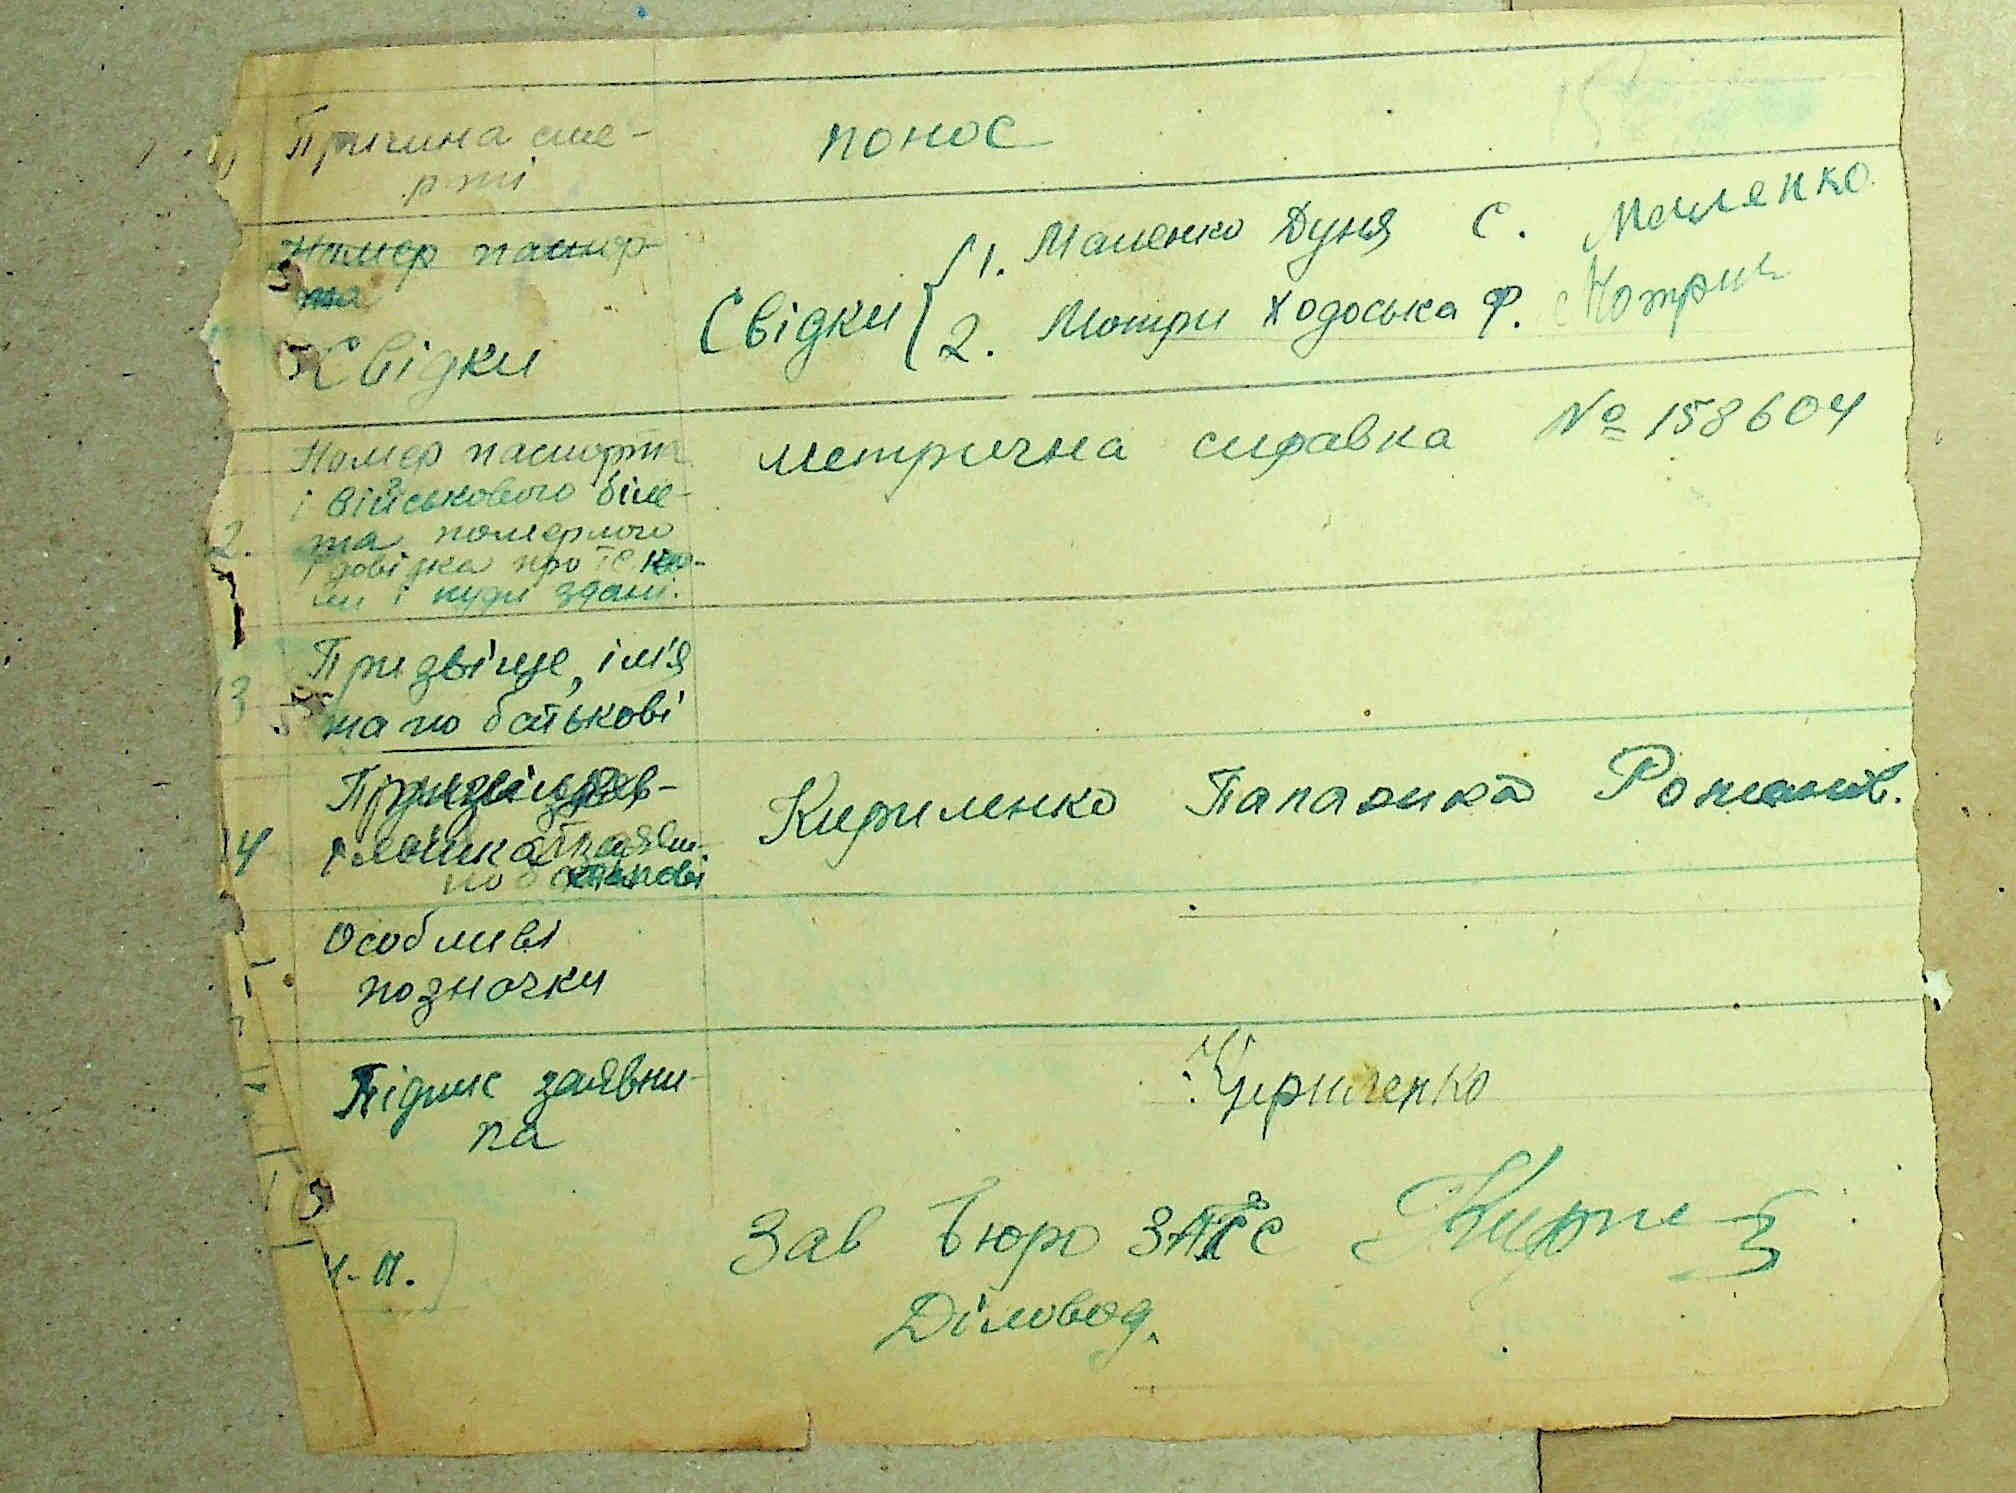 Причина сме-
рті
понос
Номер паспор-
та
Свідки
Свідки
1. Маленко Дуня С. Маленко
2. Мотри Ходоська Ф. Мотри
2. Номер паспорта
і військового біле-
та померлого
довідка про те ко-
ли і куди здані.
метрична справка № 158604
3 Призвіще, ім'я
та по батькові
14
по батькові
Кириленко Палажка Романів.
Особливі
позначки
Підпис заявни-
ка
Кириленко
Ч.П.
Зав Бюро ЗАГС
Діловод.